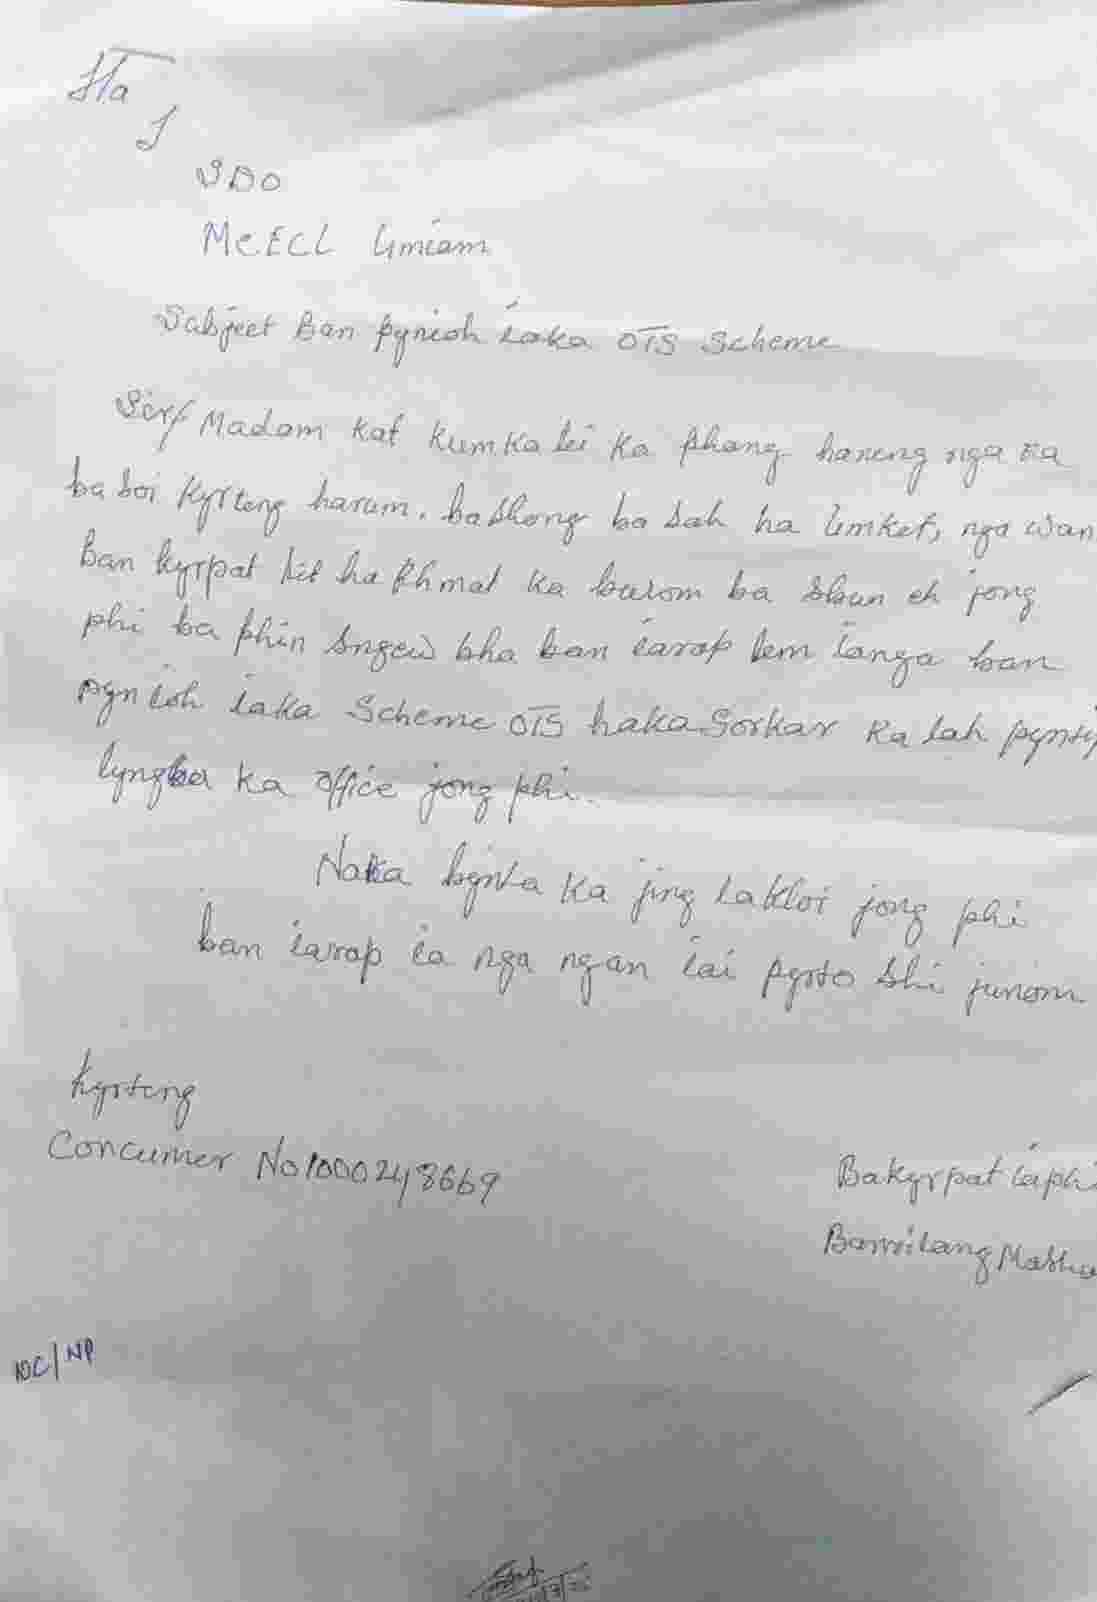 Ha
I
SDO
MeECL Umiam
Subject Ban pynioh iaka OTS Scheme
Sir/Madam kat kumka lei ka phang haneng nga ka
ba soi kyrteng harum. ba shong ba sah ha Umket, nga wan
ban kyrpat hi ha khmat ka burom ba shun eh jong
phi ba phin sngew bha ban iarap lem ianga ban
pynioh iaka Scheme OTS haka Sorkar ka lah pynti
lyngba ka office jong phi.
Naka bynta ka jing lakloi jong phi
ban iarap ia nga ngan iai pyrto shi junom
Kyrteng
Concumer No 1000248669
Bakyrpat iaphi
Banrilang Mashu
NC/NP